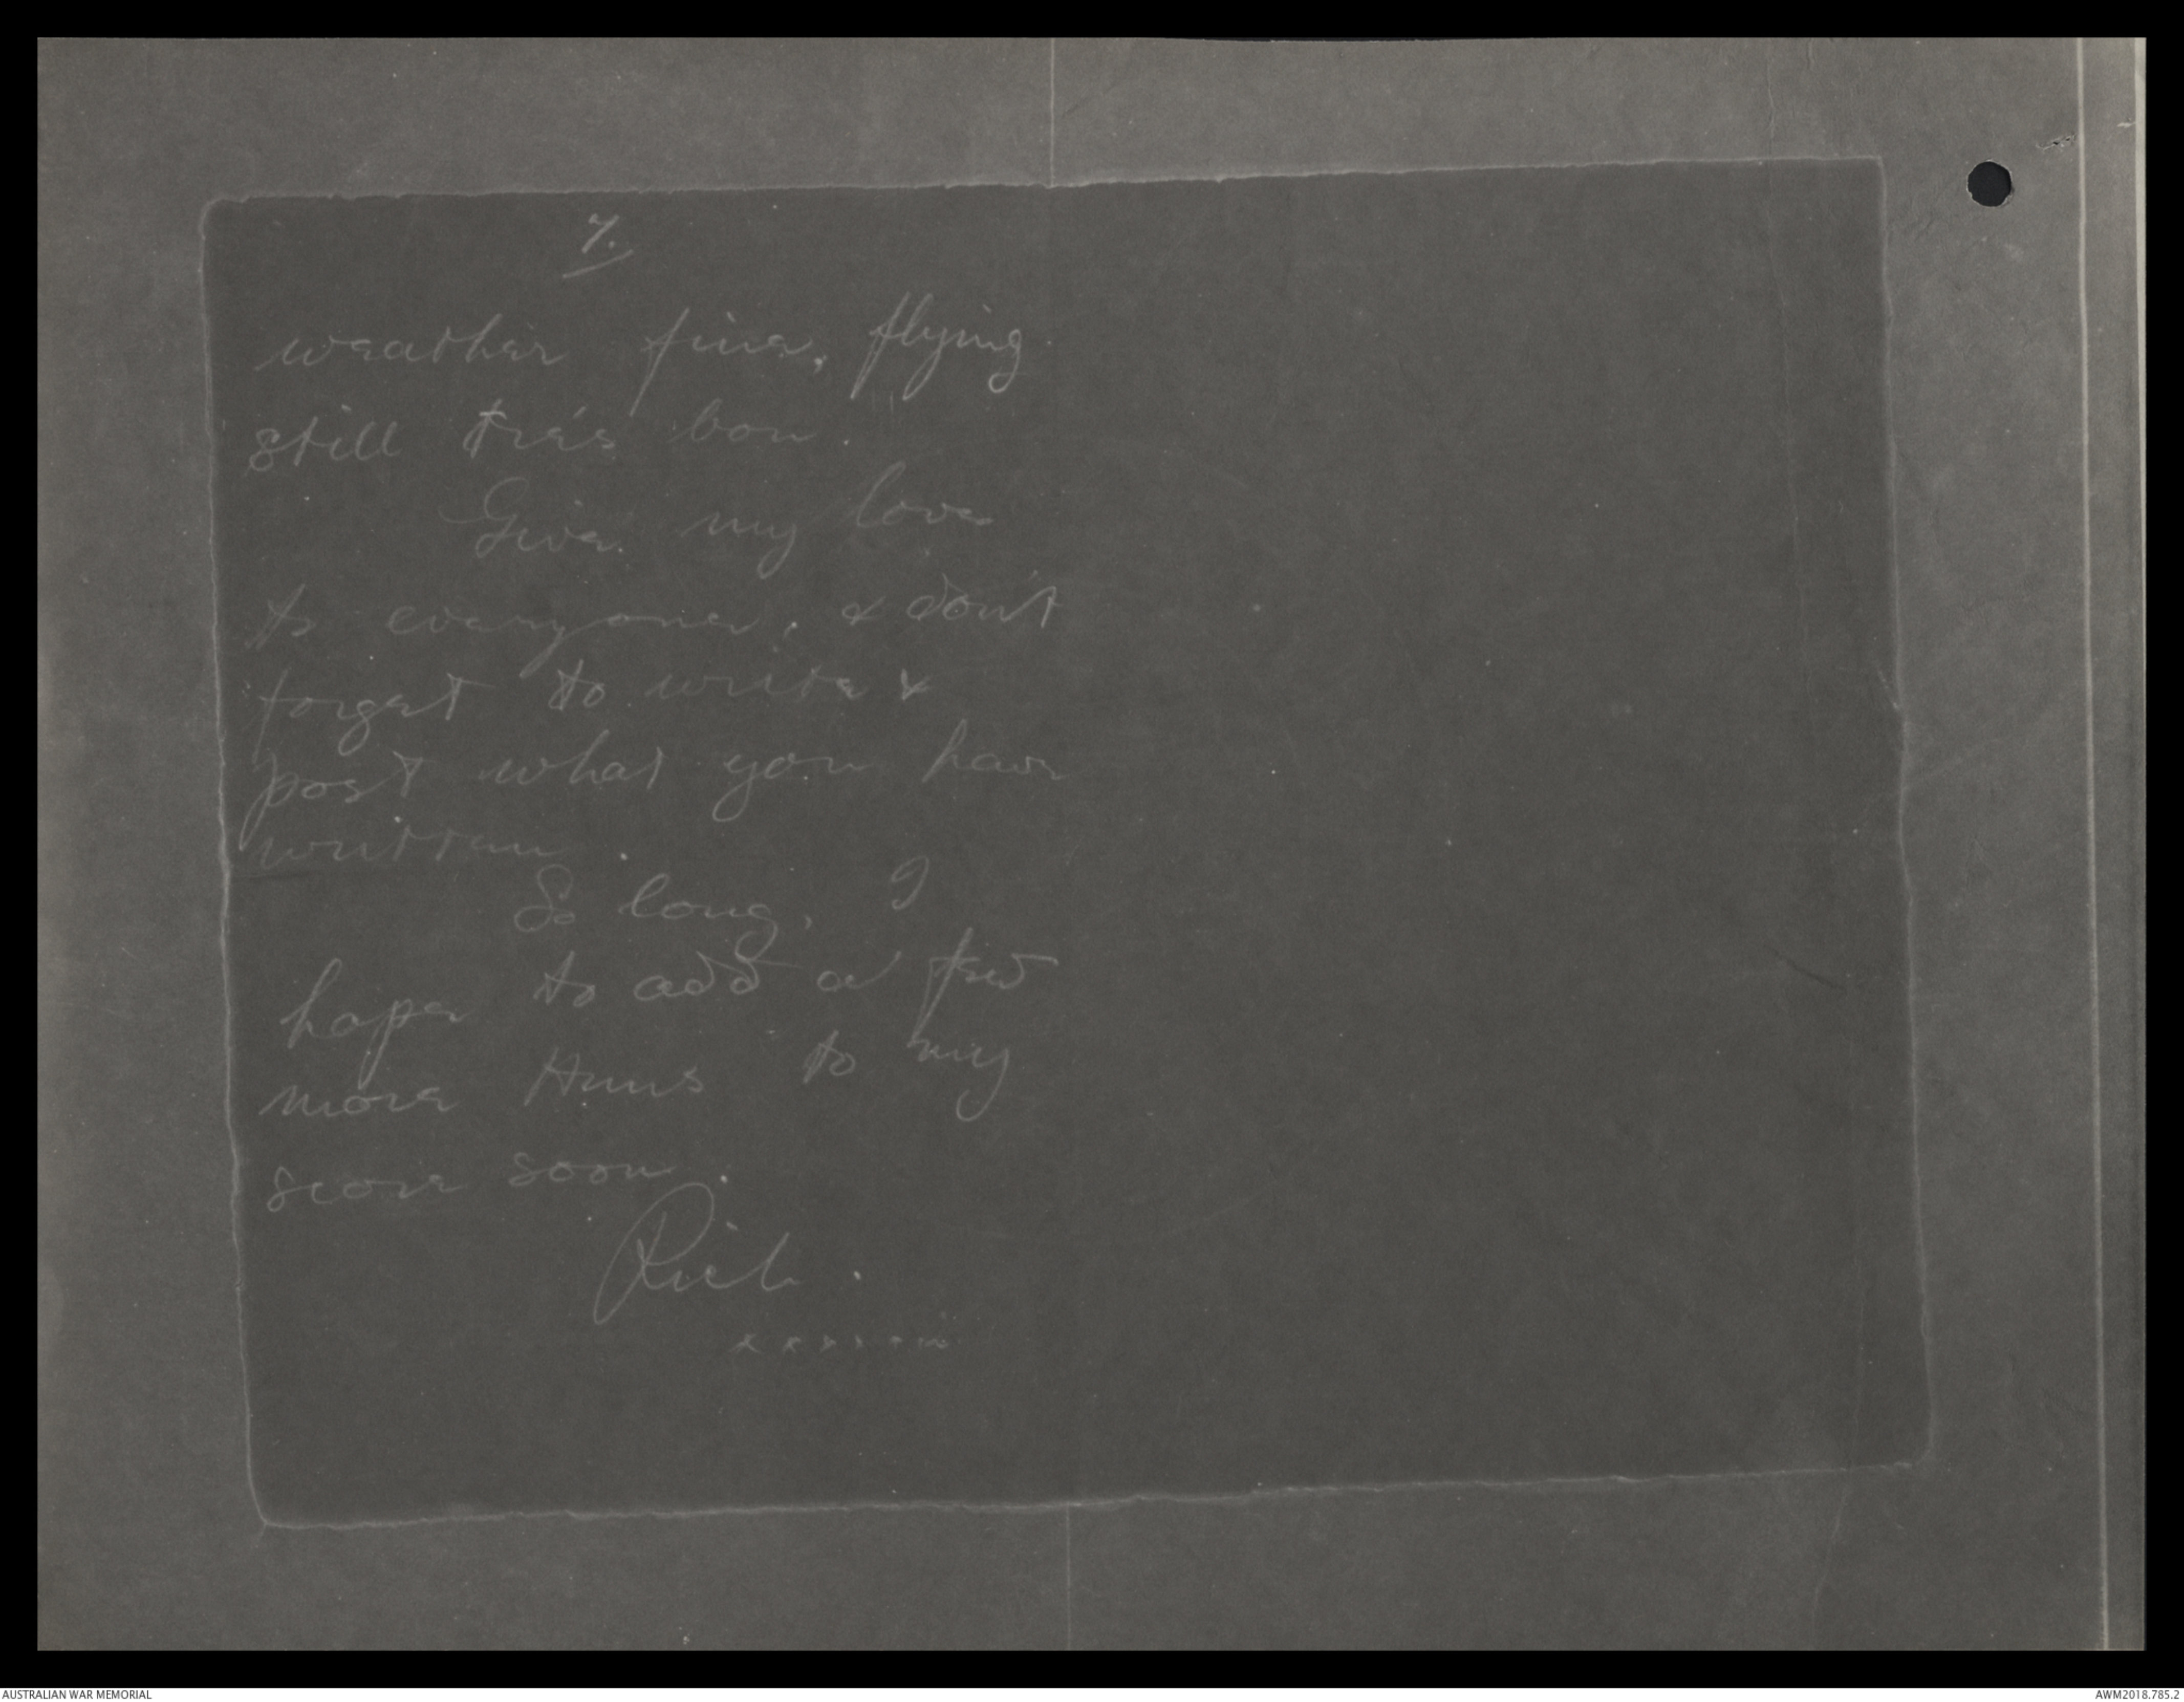 7.
weather fine, flying
still trés bon.
Give my love
to everyone, & don't
forget to write &
post what you have
written.
So long, I
hope to add a few
more Huns to my
score soon.
Rich.
AUSTRALIAN WAR MEMORIAL
AWM2018.785.2